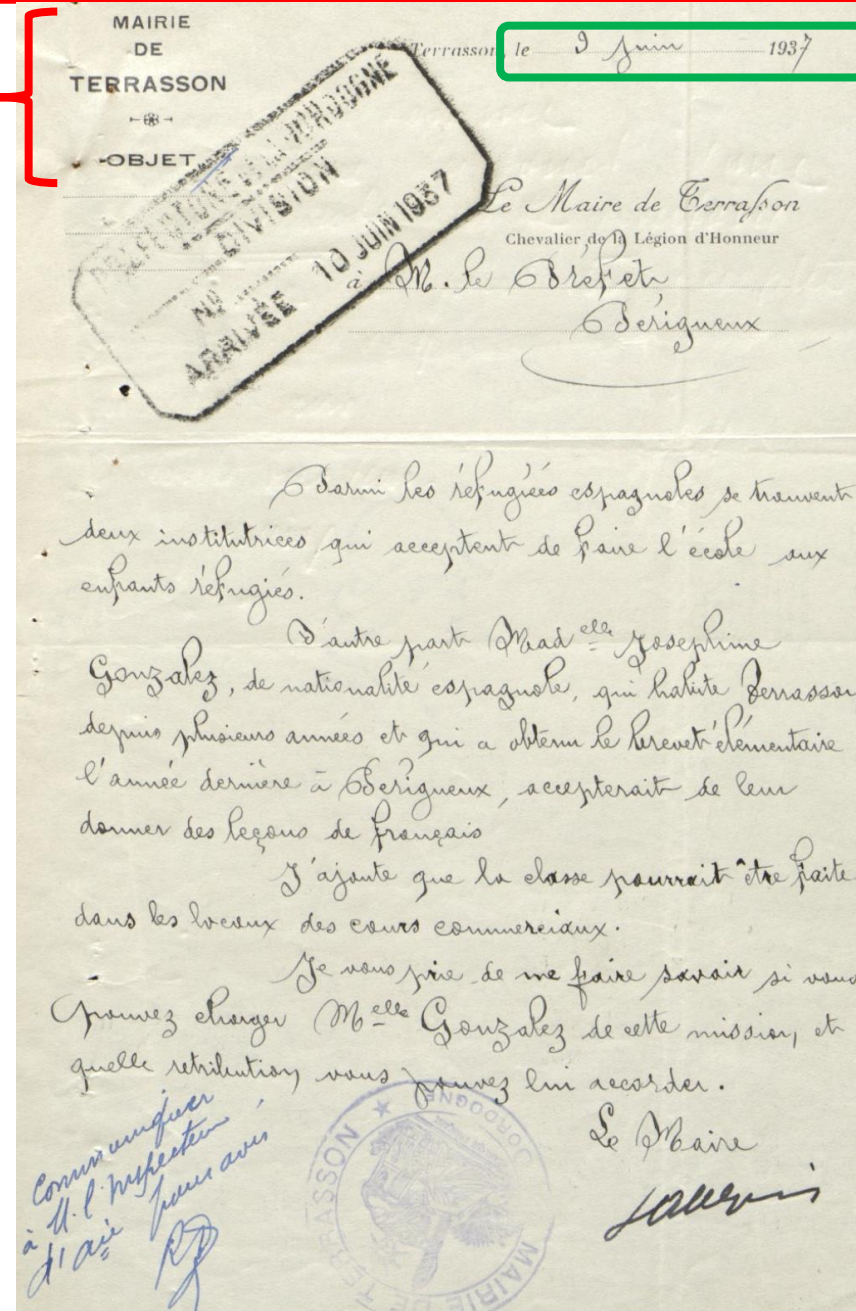 MAIRIE
DE
TERRASSON
OBJET
Terrasson, le 9 Juin 1937
PRÉFECTURE DE LA DORDOGNE
DIVISION
No
ARRIVÉE 10 JUIN 1937
Le Maire de Terrasson
Chevalier de la Légion d'Honneur
à M. le Préfet
Périgueux
Parmi les réfugiées espagnoles se trouvent
deux institutrices qui acceptent de faire l'école aux
enfants réfugiés.
D'autre part Mad elle Josephine
Gonzalez, de nationalité espagnole, qui habite Terrasson
depuis plusieurs années et qui a obtenu le brevet élémentaire
l'année dernière à Périgueux, accepterait de leur
donner des leçons de français
J'ajoute que la classe pourrait être faite
dans les locaux des cours commerciaux.
Je vous prie de me faire savoir si vous
pouvez charger M elle Gonzalez de cette mission, et
quelle retribution, vous pouvez lui accorder.
Le Maire
communiquer
à M. l'Inspecteur
d'Aie pour avis
MAIRIE DE TERRASSON
DORDOGNE